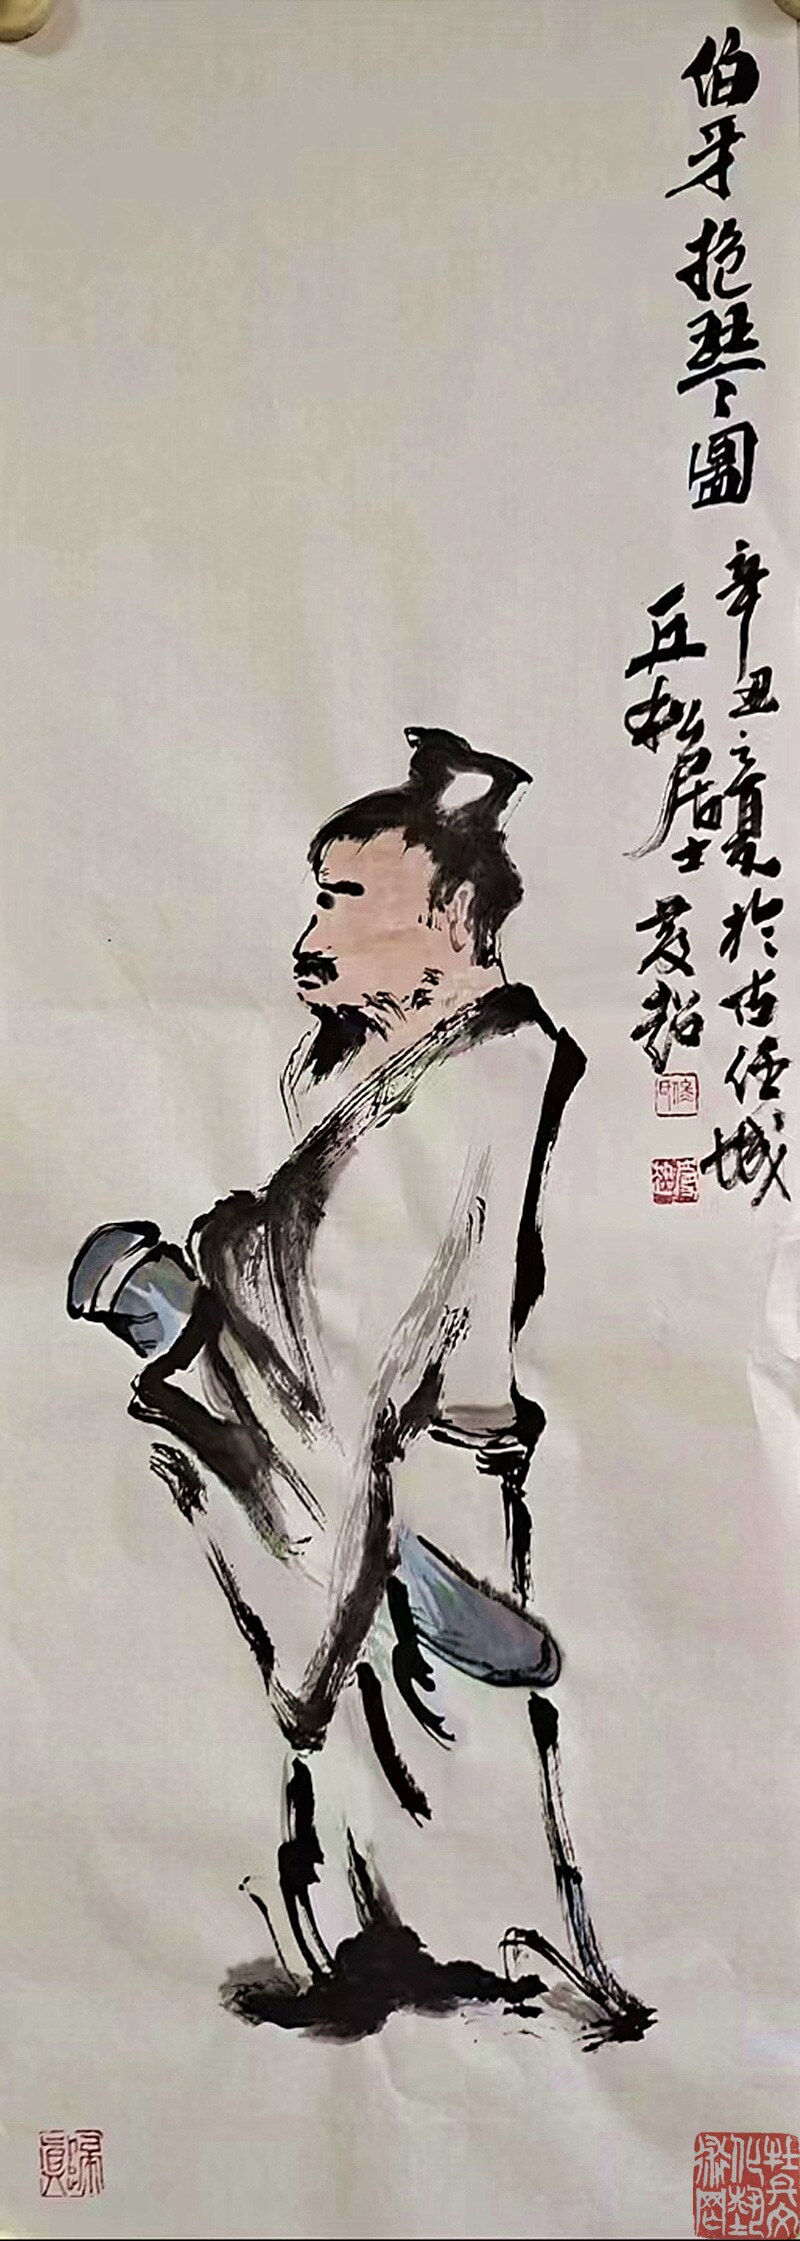 伯牙抱琴圖
辛丑之夏於古任城
丘松居士
歸真